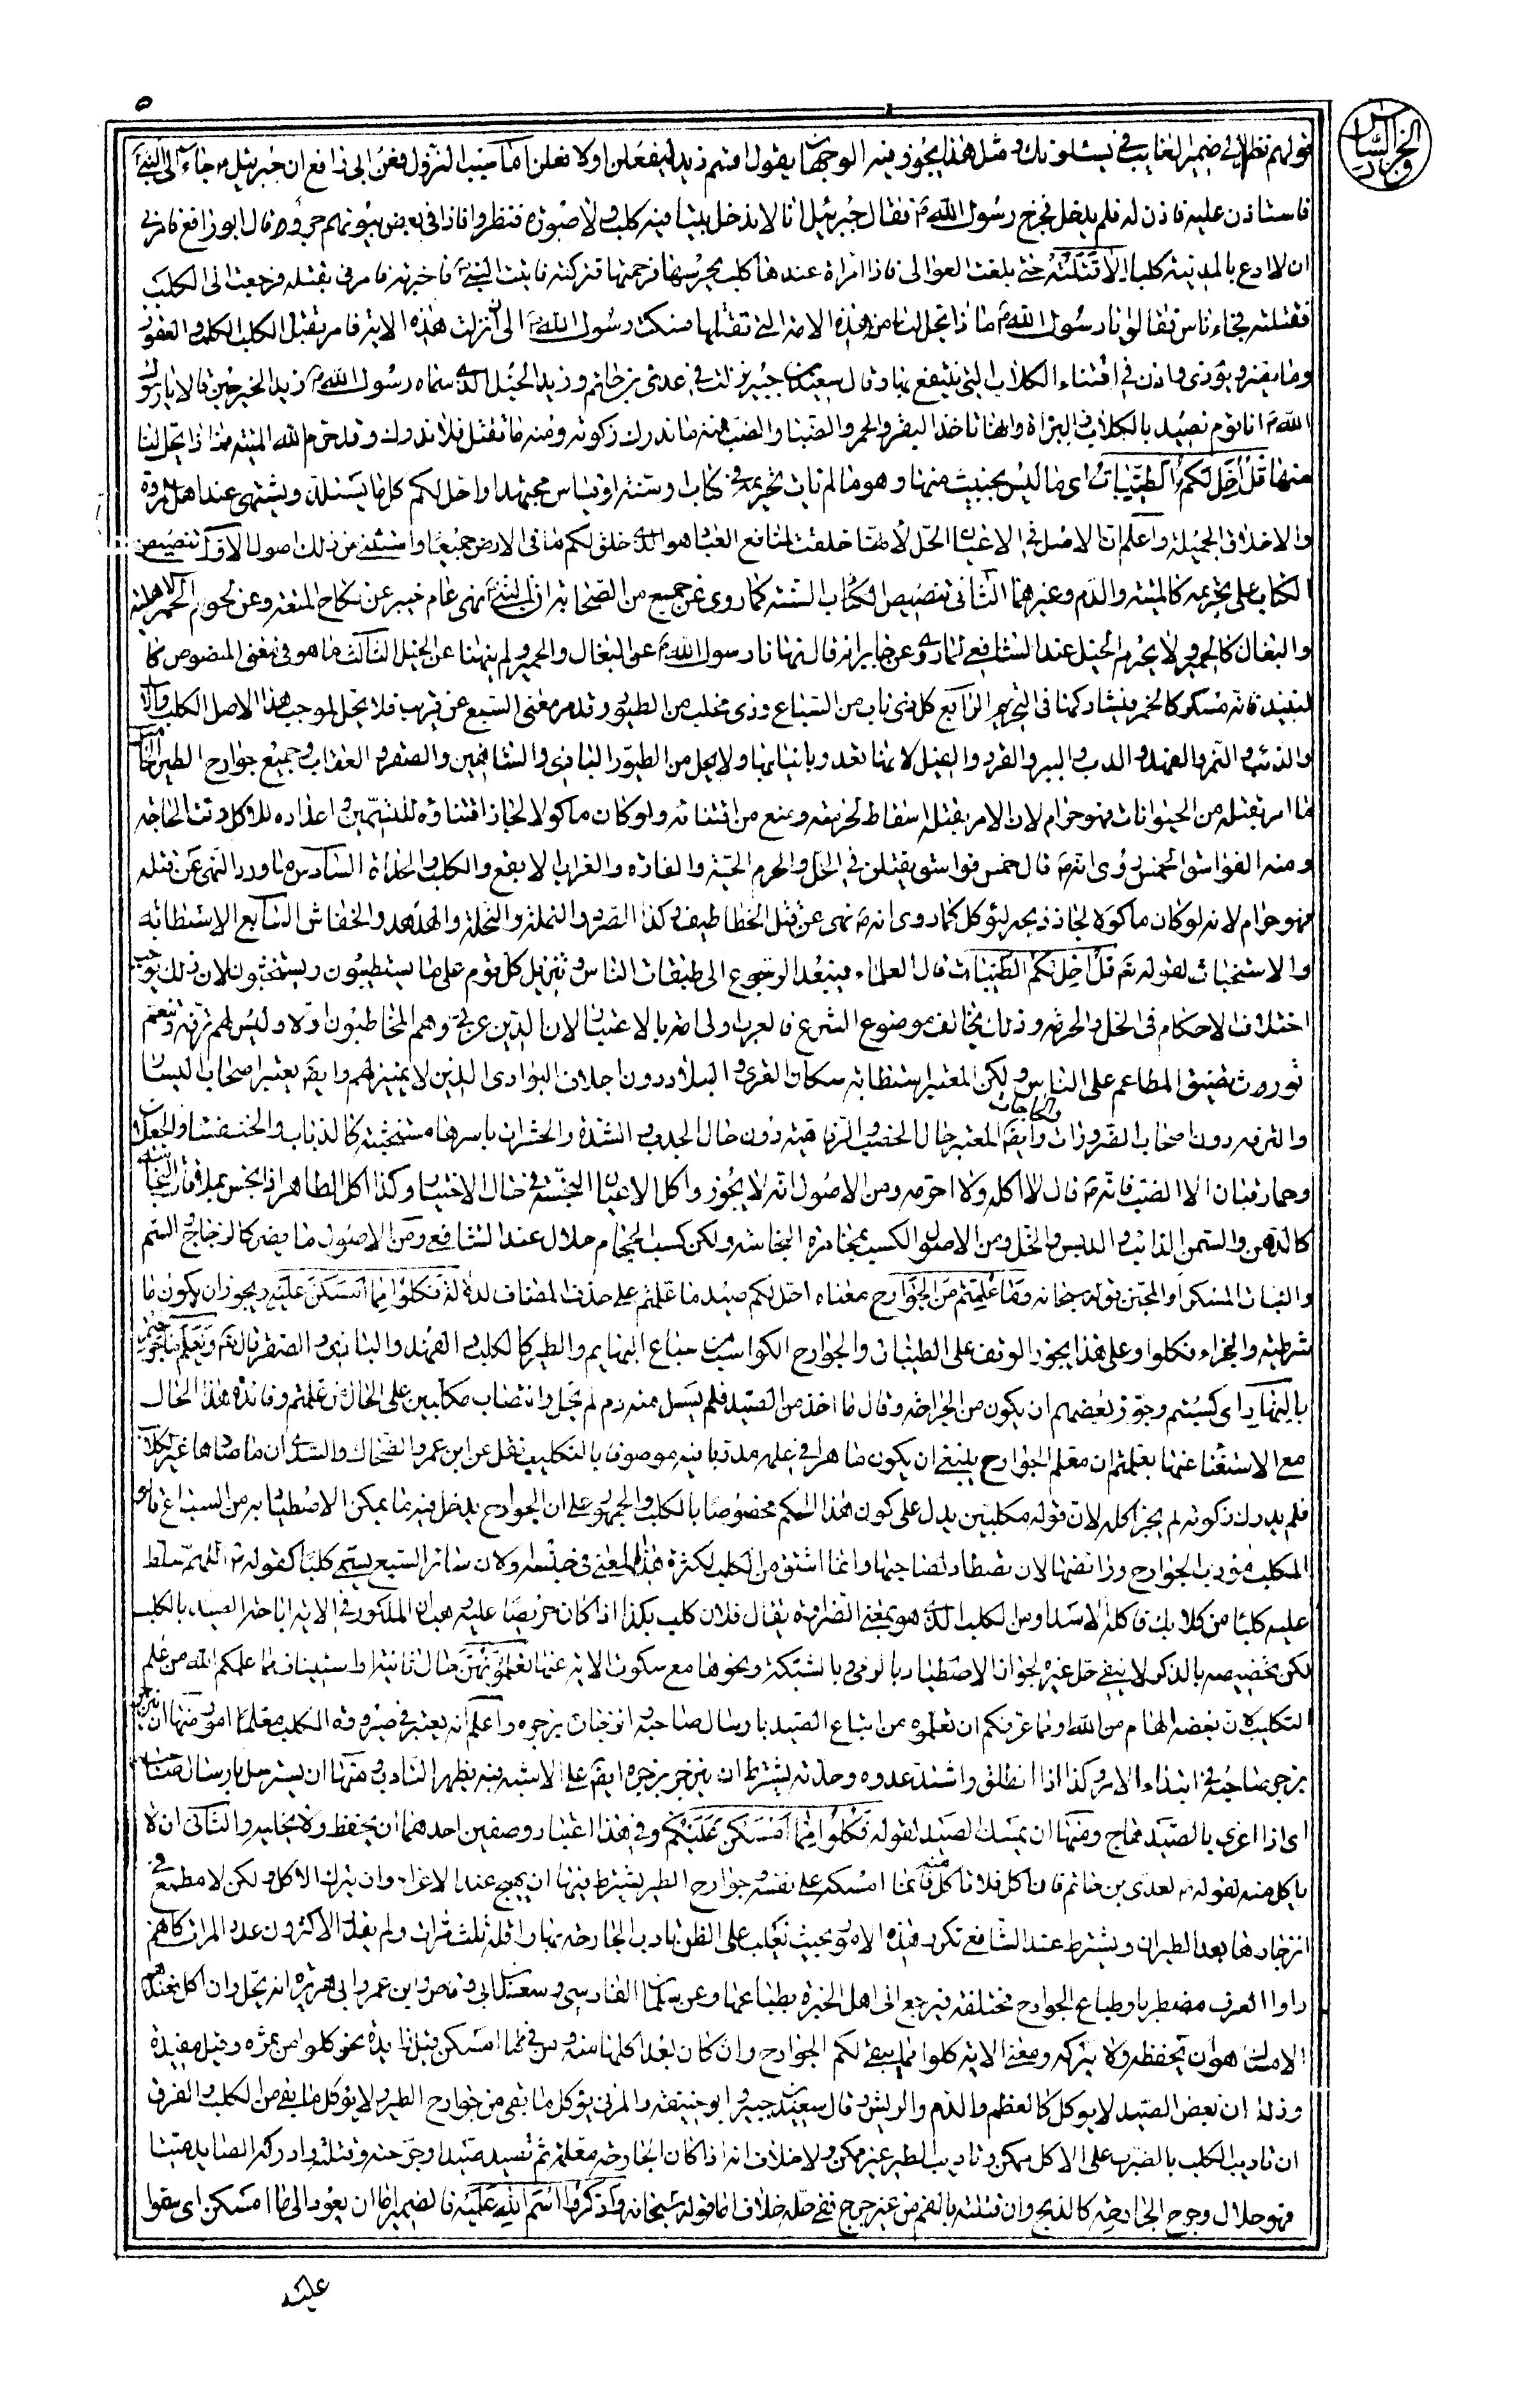 الجزء السادس
٥
قولهم نظرا إلى ضمير الغايب في يسئلونك ومثل هذا يجوز فيه الوجهان يقول اقسم زيد ليفعلن اولا فعلن اما سبب النزول فعن ابى رافع ان جبرئيل ع جاء الى النبي ص
فاستاذن عليه فاذن له فلم يدخل فخرج رسول الله ص فقال جبرئيل انا لا ندخل بيتا فيه كلب ولا صورة فنظروا فاذا في بعض بيوتهم جرو قال ابو رافع فامرني
ان لا ادع بالمدينة كلبا الا قتلته حتى بلغت العوالى فاذا امراة عندها كلب يحرسها فرحمتها فتركته فاتيت النبي ص فاخبرته فامرنى بقتله فرجعت الى الكلب
فقتلته فجاء ناس فقالوا يا رسول الله ص ما ذا يحل لنا من هذه الامة التي تقتلها فسكت رسول الله ص الى ان نزلت هذه الاية فامر بقتل الكلب الكلب والعقور
وما يضر ويؤذى واذن في اقتناء الكلاب التي ينتفع بها وقال سعيد بن جبير نزلت في عدى بن حاتم وزيد الخيل الذى سماه رسول الله ص زيد الخير حين قالا يا رسول
الله ص انا قوم نصيد بالكلاب والبزاة وانها تاخذ البقر والحمر والظباء والضب فمنه ما ندرك زكوته ومنه ما تقتل فلا ندرك وقد حرم الله الميتة فما ذا يحل لنا
منها قل احل لكم الطيبات اى ما ليس بخبيث منها وهو ما لم يات تحريمه في كتاب او سنة او قياس مجتهد او احل لكم كل ما يستلذ ويشتهى عند اهل المروة
والاخلاق الجميلة واعلم ان الاصل في الاعيان الحل لانها خلقت لمنافع العباد هو الذى خلق لكم ما في الارض جميعا واستثنى من ذلك اصول الاول تنصيص
الكتاب على تحريمه كالميتة والدم وغيرهما الثانى تنصيص السنة كما روى عن جميع من الصحابة ان النبي ص نهى عام خيبر عن نكاح المتعة وعن لحوم الحمر الاهلية
والبغال كالحمير ولا يحرم الخيل عند الشافعي لما روى عن جابر انه قال نهانا رسول الله ص عن البغال والحمير ولم ينهنا عن الخيل الثالث ما هو في معنى المنصوص كا
لنبيذ فانه مسكر كالخمر فيشاركها في التحريم الرابع كل ذى ناب من السباع وذى مخلب من الطيور وقد مر معنى السبع عن قريب فلا يحل لموجب هذا الاصل الكلب والاسد
والذئب والنمر والفهد والدب والببر والقرد والفيل لانها تعدو بانيابها ولا يحل من الطيور البازى والشاهين والصقر والعقاب وجميع جوارح الطير الخامس
ما امر بقتله من الحيوانات فهو حرام لان الامر بقتله اسقاط لحرمته ومنع من اقتنائه ولو كان ماكولا لجاز اقتناؤه للتسمين واعداده للاكل وقت الحاجة
ومنه الفواسق الخمس روى انه ص قال خمس فواسق يقتلن في الحل والحرم الحية والفارة والغراب الابقع والكلب والحداة السادس ما ورد النهى عن قتله
فهو حرام لانه لو كان ماكولا لجاز ذبحه ليؤكل كما روى انه ص نهى عن قتل الخطاطيف وكذا الصرد والنملة والنحلة والهدهد والخفاش السابع الاستطابة
والاستخباث لقوله تعم قل احل لكم الطيبات قال العلماء فيبعد الرجوع الى طبقات الناس وتنزيل كل قوم على ما يستطيبون ويستخبثون لان ذلك يوجب
اختلاف الاحكام في الحل والحرمة وذلك يخالف موضوع الشرع فالعرب اولى امة بالاعتبار لان الدين عربي وهم المخاطبون اولا وليس لهم ترفه وتنعم
يورث تضييق المطاعم على الناس ولكن المعتبر استطابة سكان القرى والبلاد دون اجلاف البوادى الذين لا تمييز لهم وايضا يعتبر اصحاب اليسار
والترفه دون اصحاب الضرورات والحاجات وايضا المعتبر حال الخصب والرفاهية دون حال الجدب والشدة والحشرات باسرها مستخبثة كالذباب والخنفساء والجعلان
وحمار قبان الا الضب فانه ص قال لا اكله ولا احرمه ومن الاصول انه لا يجوز اكل الاعيان النجسة في حال الاختيار وكذا اكل الطاهر اذا نجس بملاقاة النجاسة
كالدهن والسمن الذائب والدبس والخل ومن الاصول الكسب بمخامرة النجاسة ولكن كسب الحجام حلال عند الشافعي ومن الاصول ما يضر كالزجاج والسم
والنبات المسكر او المجنن قوله سبحانه وما علمتم من الجوارح معناه احل لكم صيد ما علمتم على حذف المضاف لدلالة فكلوا مما امسكن عليه ويجوز ان يكون ما
شرطية والجزاء فكلوا وعلى هذا يجوز الوقف على الطيبات والجوارح الكواسب من سباع البهايم والطير كالكلب والفهد والبازى والصقر قال تعم ويعلم ما جرحتم
بالنهار اى كسبتم وجوز بعضهم ان يكون من الجراحة وقال ما اخذ من الصيد فلم يسل منه دم لم يحل وانتصاب مكلبين على الحال من علمتم وفائدة هذا الحال
مع الاستغناء عنها بعلمتم ان معلم الجوارح ينبغى ان يكون ماهرا في علمه مدربا فيه موصوفا بالتكليب نقل عن ابن عمر والضحاك والسدى ان ما صادها غير الكلاب
فلم يدرك زكوته لم يجز اكله لان قوله مكلبين يدل على كون هذا الحكم مخصوصا بالكلب والجمهور على ان الجوارح يدخل فيه ما يمكن الاصطياد به من السباع قالوا
المكلب مؤدب الجوارح ورائضها لان تصطاد لصاحبها وانما اشتق من الكلب لكثرة هذا المعنى في جنسه ولان سائر السبع يسمى كلبا كقوله ص اللهم سلط
عليه كلبا من كلابك فاكله الاسد او من الكلب الذى هو بمعنى الضراوة يقال فلان كلب بكذا اذا كان حريصا عليه هب ان المذكور في الاية اباحة الصيد بالكلب
لكن تخصيصه بالذكر لا ينفى حل غيره لجواز الاصطياد بالرمى وبالشبكة ونحوها مع سكوت الاية عنها تعلمونهن حال ثانية او استيناف مما علمكم الله من علم
التكليب لان بعضه الهام من الله او مما عرفكم ان تعلموه من اتباع الصيد بارسال صاحبه وانزجاره بزجره واعلم انه يعتبر في صيرورة الكلب معلما امور منها ان ينزجر
بزجر صاحبه في ابتداء الامر وكذا اذا انطلق واشتد عدوه وحدته يشترط ان ينزجر بزجره ايضا على الاشبه فبه يظهر التادب ومنها ان يسترسل بارسال صاحبه
اى اذا اغرى بالصيد فهاج ومنها ان يمسك الصيد لقوله فكلوا مما امسكن عليكم وفي هذا اعتبار وصفين احدهما ان يحفظه ولا يخليه والثانى ان لا
ياكل منه لقوله ص لعدى بن حاتم فان اكل فلا تاكل منه فانما امسكه على نفسه وجوارح الطير يشترط فيها ان يهيج عند الاغراء وان يترك الاكل ولكن لا مطمع في
انزجارها بعد الطيران ويشترط عند الشافعي تكرر هذه الامور بحيث يغلب على الظن تادب الجارحة بها واقله ثلث مرات ولم يقدر الاكثرون عدد المرات كانهم
راوا العرف مضطربا وطباع الجوارح مختلفة فيرجع الى اهل الخبرة بطباعها وعن سلمان الفارسي وسعد بن ابى وقاص وابن عمر وابى هريرة انه يحل وان اكل فعندهم
الامساك هو ان يحفظه ولا يتركه ومعنى الاية كلوا مما يبقى لكم الجوارح وان كان بعد اكلها منه ومن في مما امسكن قيل زايدة نحو كلوا من ثمره وقيل مفيدة
وذلك ان بعض الصيد لا يوكل كالعظم والدم والريش وقال سعيد بن جبير وابو حنيفة والمزنى يؤكل ما بقى من جوارح الطير ولا يؤكل ما بقى من الكلب والفرق
ان تاديب الكلب بالضرب على الاكل ممكن وتاديب الطير غير ممكن ولا خلاف انه اذا كان الجارحة معلمة ثم تصيد صيدا وجرحته وقتلته وادركه الصايد ميتا
فهو حلال وجرح الجارحة كالذبح وان قتلته بالفم من غير جرح ففى حله خلاف اما قوله سبحانه واذكروا اسم الله عليه فالضمير اما ان يعود الى ما امسكن اى سموا
عليه